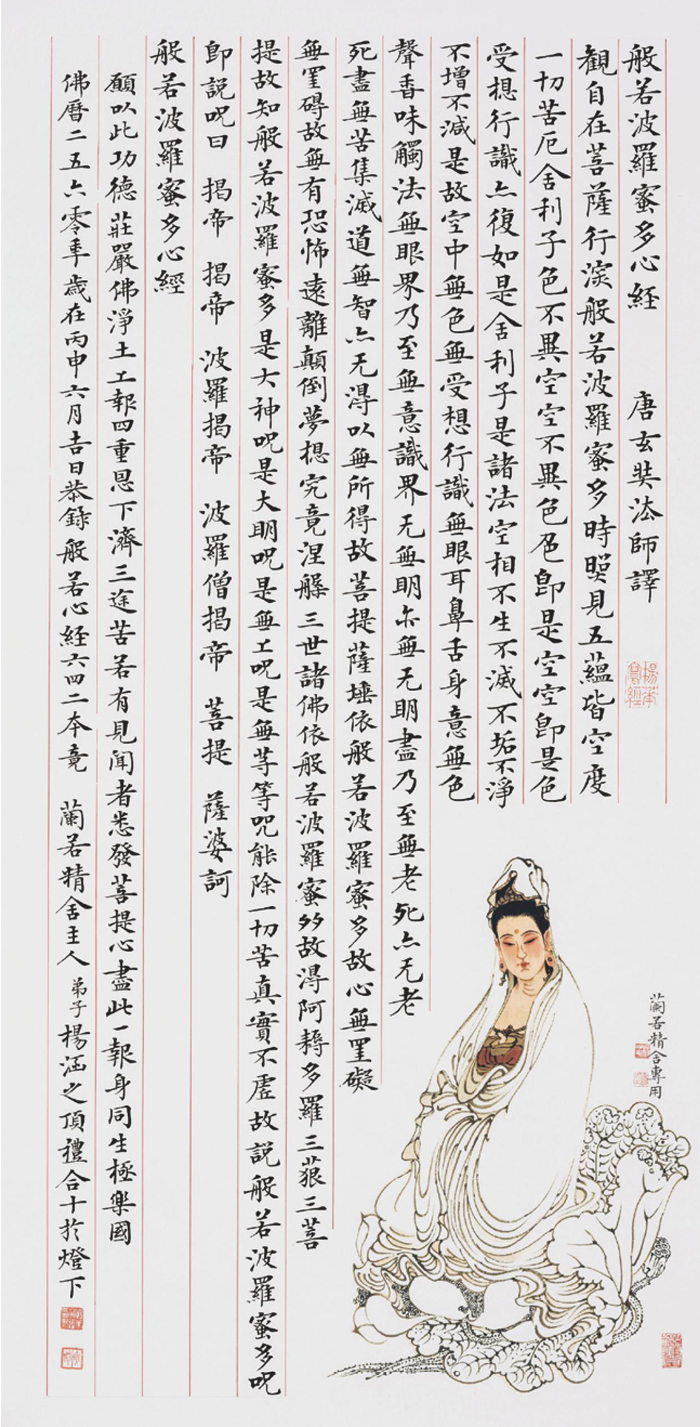 般若波羅蜜多心経 唐玄奘法師譯
觀自在菩薩行深般若波羅蜜多時照見五蘊皆空度
一切苦厄舍利子色不異空空不異色色即是空空即是色
受想行識亦復如是舍利子是諸法空相不生不滅不垢不淨
不增不減是故空中無色無受想行識無眼耳鼻舌身意無色
聲香味觸法無眼界乃至無意識界无無明亦無无明盡乃至無老死亦无老
死盡無苦集滅道無智亦无得以無所得故菩提薩埵依般若波羅蜜多故心無罣礙
無罣碍故無有恐怖遠離顛倒夢想究竟涅槃三世諸佛依般若波羅蜜多故得阿耨多羅三藐三菩
提故知般若波羅蜜多是大神呪是大明呪是無上呪是無等等呪能除一切苦真實不虛故說般若波羅蜜多呪
即說呪曰 揭帝 揭帝 波羅揭帝 波羅僧揭帝 菩提 薩婆訶
般若波羅蜜多心經
願以此功德莊嚴佛淨土上報四重恩下濟三途苦若有見聞者悉發菩提心盡此一報身同生極樂國
佛曆二五六零年歲在丙申六月吉日恭錄般若心経六四二本竟 蘭若精舍主人 弟子 楊涵之頂禮合十於燈下
蘭若精舍專用